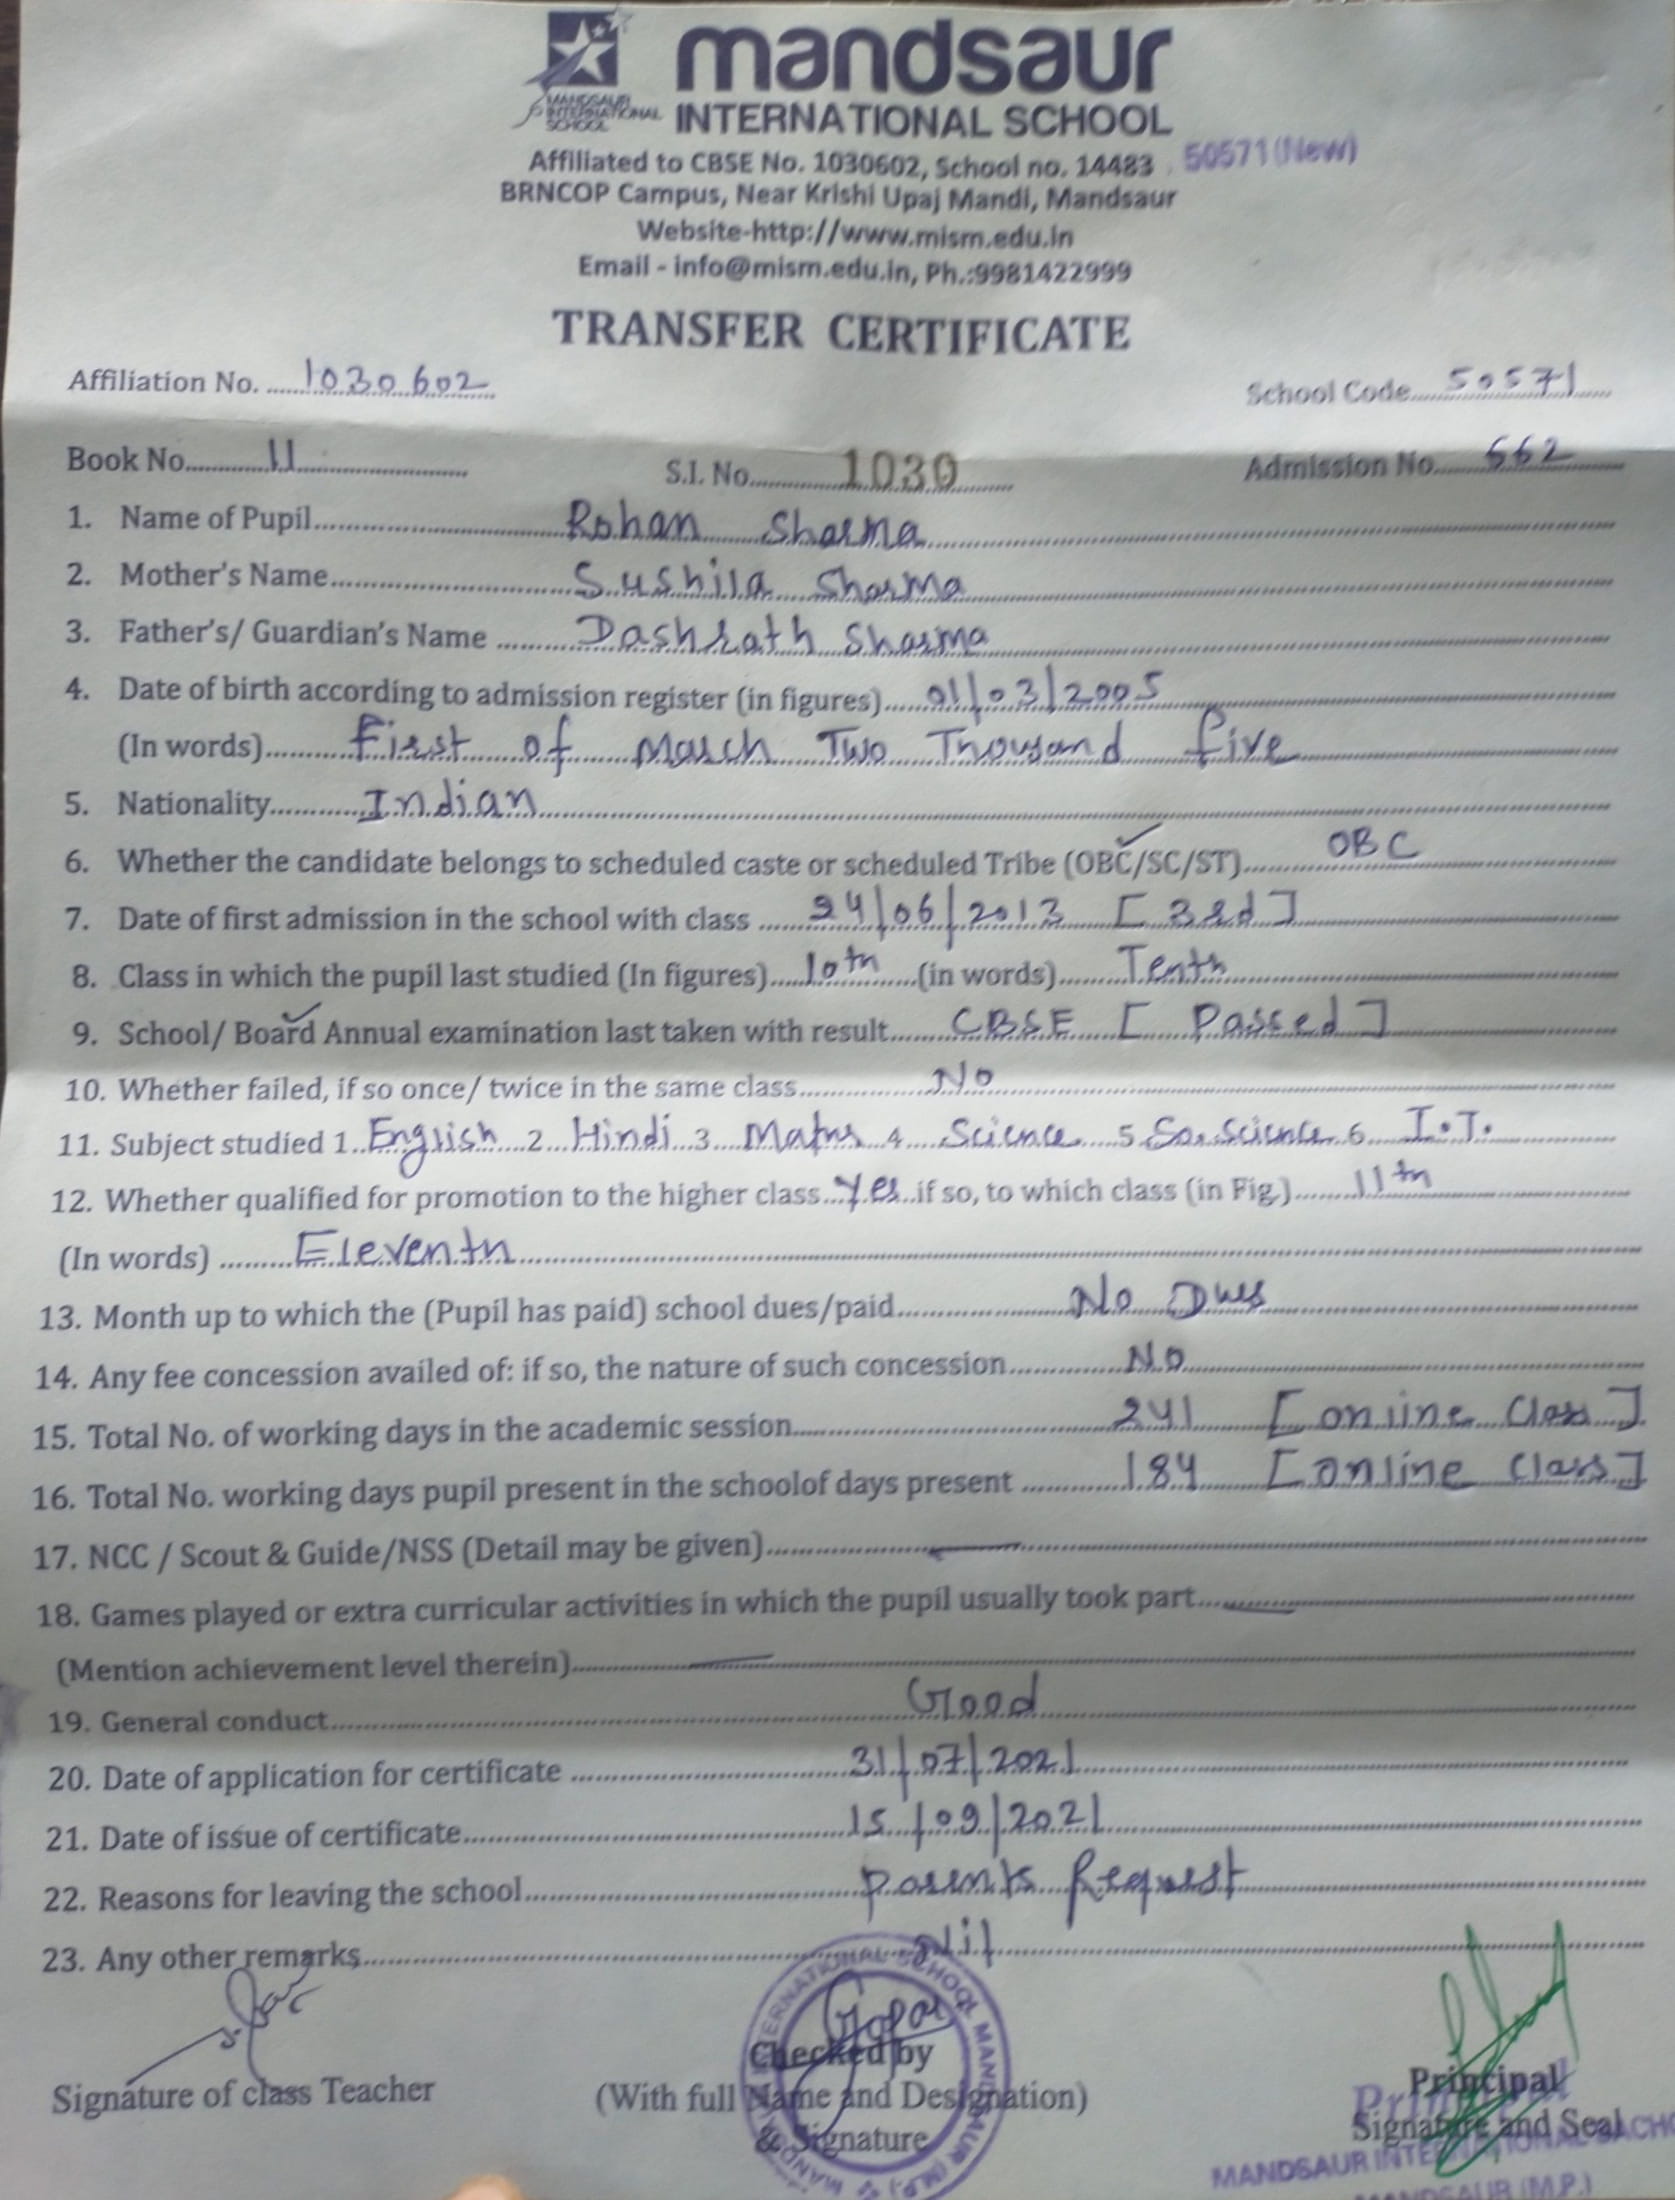 mandsaur
MANDSAUR INTERNATIONAL SCHOOL
INTERNATIONAL SCHOOL
Affiliated to CBSE No. 1030602, School no. 14483, 50571(New)
BRNCOP Campus, Near Krishi Upaj Mandi, Mandsaur
Website-http://www.mism.edu.in
Email - info@mism.edu.in, Ph.:9981422999
TRANSFER CERTIFICATE
Affiliation No. 1030602 School Code 50571
Book No. 11 S.I. No. 1030 Admission No. 662
1. Name of Pupil Rohan Sharma
2. Mother's Name Sushila Sharma
3. Father's/ Guardian's Name Dashrath Sharma
4. Date of birth according to admission register (in figures) 01/03/2005
(In words) First of March Two Thousand five
5. Nationality Indian
6. Whether the candidate belongs to scheduled caste or scheduled Tribe (OBC/SC/ST) OBC
7. Date of first admission in the school with class 24/06/2013 [3rd]
8. Class in which the pupil last studied (In figures) 10th (in words) Tenth
9. School/ Board Annual examination last taken with result CBSE [Passed]
10. Whether failed, if so once/ twice in the same class No
11. Subject studied 1 English 2 Hindi 3 Maths 4 Science 5 So. Science 6 I.T.
12. Whether qualified for promotion to the higher class Yes if so, to which class (in Fig.) 11th
(In words) Eleventh
13. Month up to which the (Pupil has paid) school dues/paid No Dues
14. Any fee concession availed of: if so, the nature of such concession No
15. Total No. of working days in the academic session 241 [online Class]
16. Total No. working days pupil present in the schoolof days present 184 [online Class]
17. NCC / Scout & Guide/NSS (Detail may be given)
18. Games played or extra curricular activities in which the pupil usually took part
(Mention achievement level therein)
19. General conduct Good
20. Date of application for certificate 31/07/2021
21. Date of issue of certificate 15/09/2021
22. Reasons for leaving the school Parents Request
23. Any other remarks Nil
Signature of class Teacher
Checked by
(With full Name and Designation)
& Signature
Principal
Signature and Seal
Principal
MANDSAUR INTERNATIONAL
MANDSAUR (M.P.)